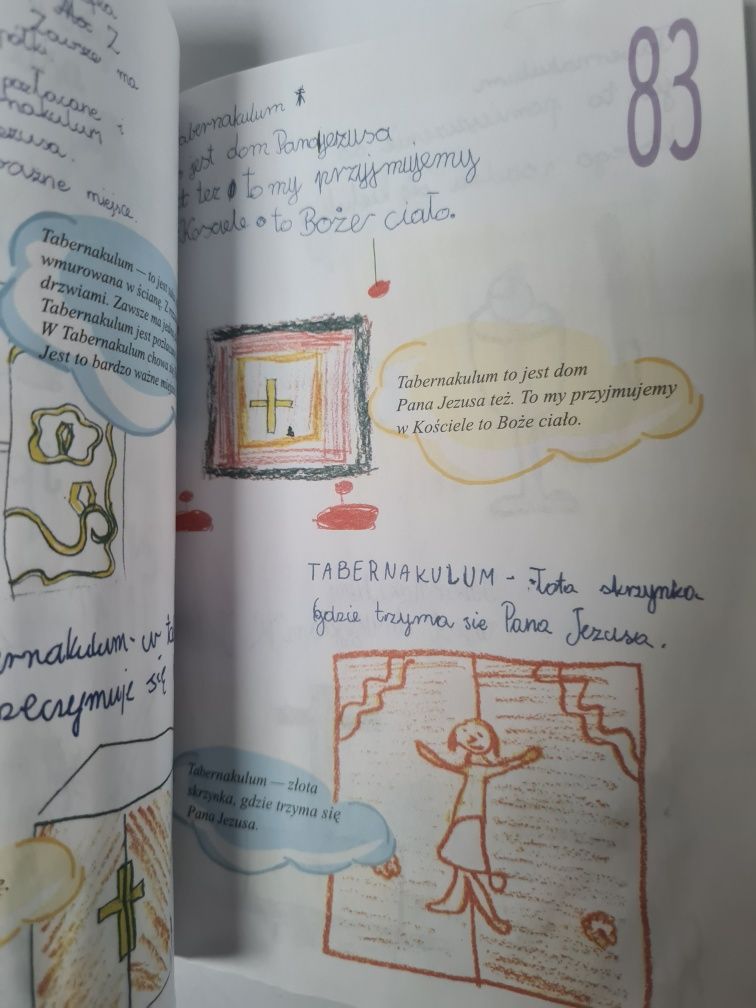 Zawsze ma
pozłacane i
miejsce.
Tabernakulum — to jest
wmurowana w ścianę. Z
drzwiami. Zawsze ma
Tabernakulum jest
W Tabernakulum chowa się
Jest to bardzo ważne
83
jest dom Pana Jezusa
też to my przyjmujemy
Kościele to Boże ciało.
Tabernakulum to jest dom
Pana Jezusa też. To my przyjmujemy
w Kościele to Boże ciało.
TABERNAKULUM - złota skrzynka
gdzie trzyma sie Pana Jezusa.
Tabernakulum — złota
skrzynka, gdzie trzyma się
Pana Jezusa.